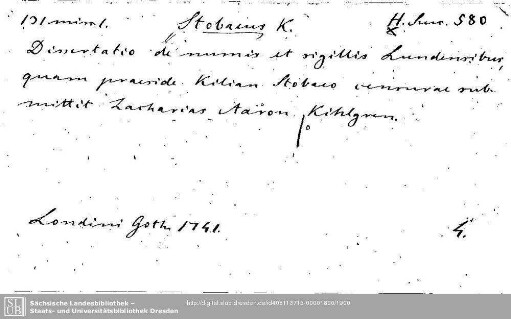 Stobaeus K.
H. Suec. 580
Dissertatio de numis et sigillis Lundensibus,
quam praeside Kilian Stobaeo censurae sub-
mittit Zacharias Aaron Kihlgren.
Londini Goth. 1741.
4.
Sächsische Landesbibliothek –
Staats- und Universitätsbibliothek Dresden